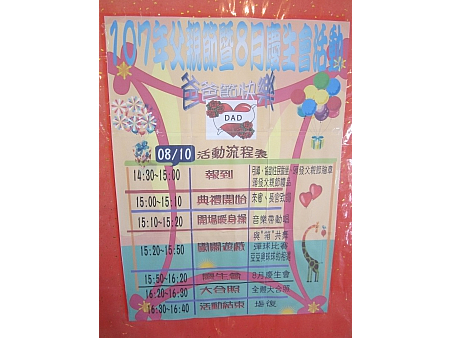 107年父親節暨8月慶生會活動
爸爸節快樂
DAD
08/10 活動流程表
14:30~15:00 報到
15:00~15:10 典禮開始
15:10~15:20 開場暖身操 音樂帶動唱
15:20~15:50 團體遊戲 彈球比賽
15:50~16:20 慶生會 8月慶生會
16:20~16:30 大合照 全體大合照
16:30~16:40 活動結束 場復